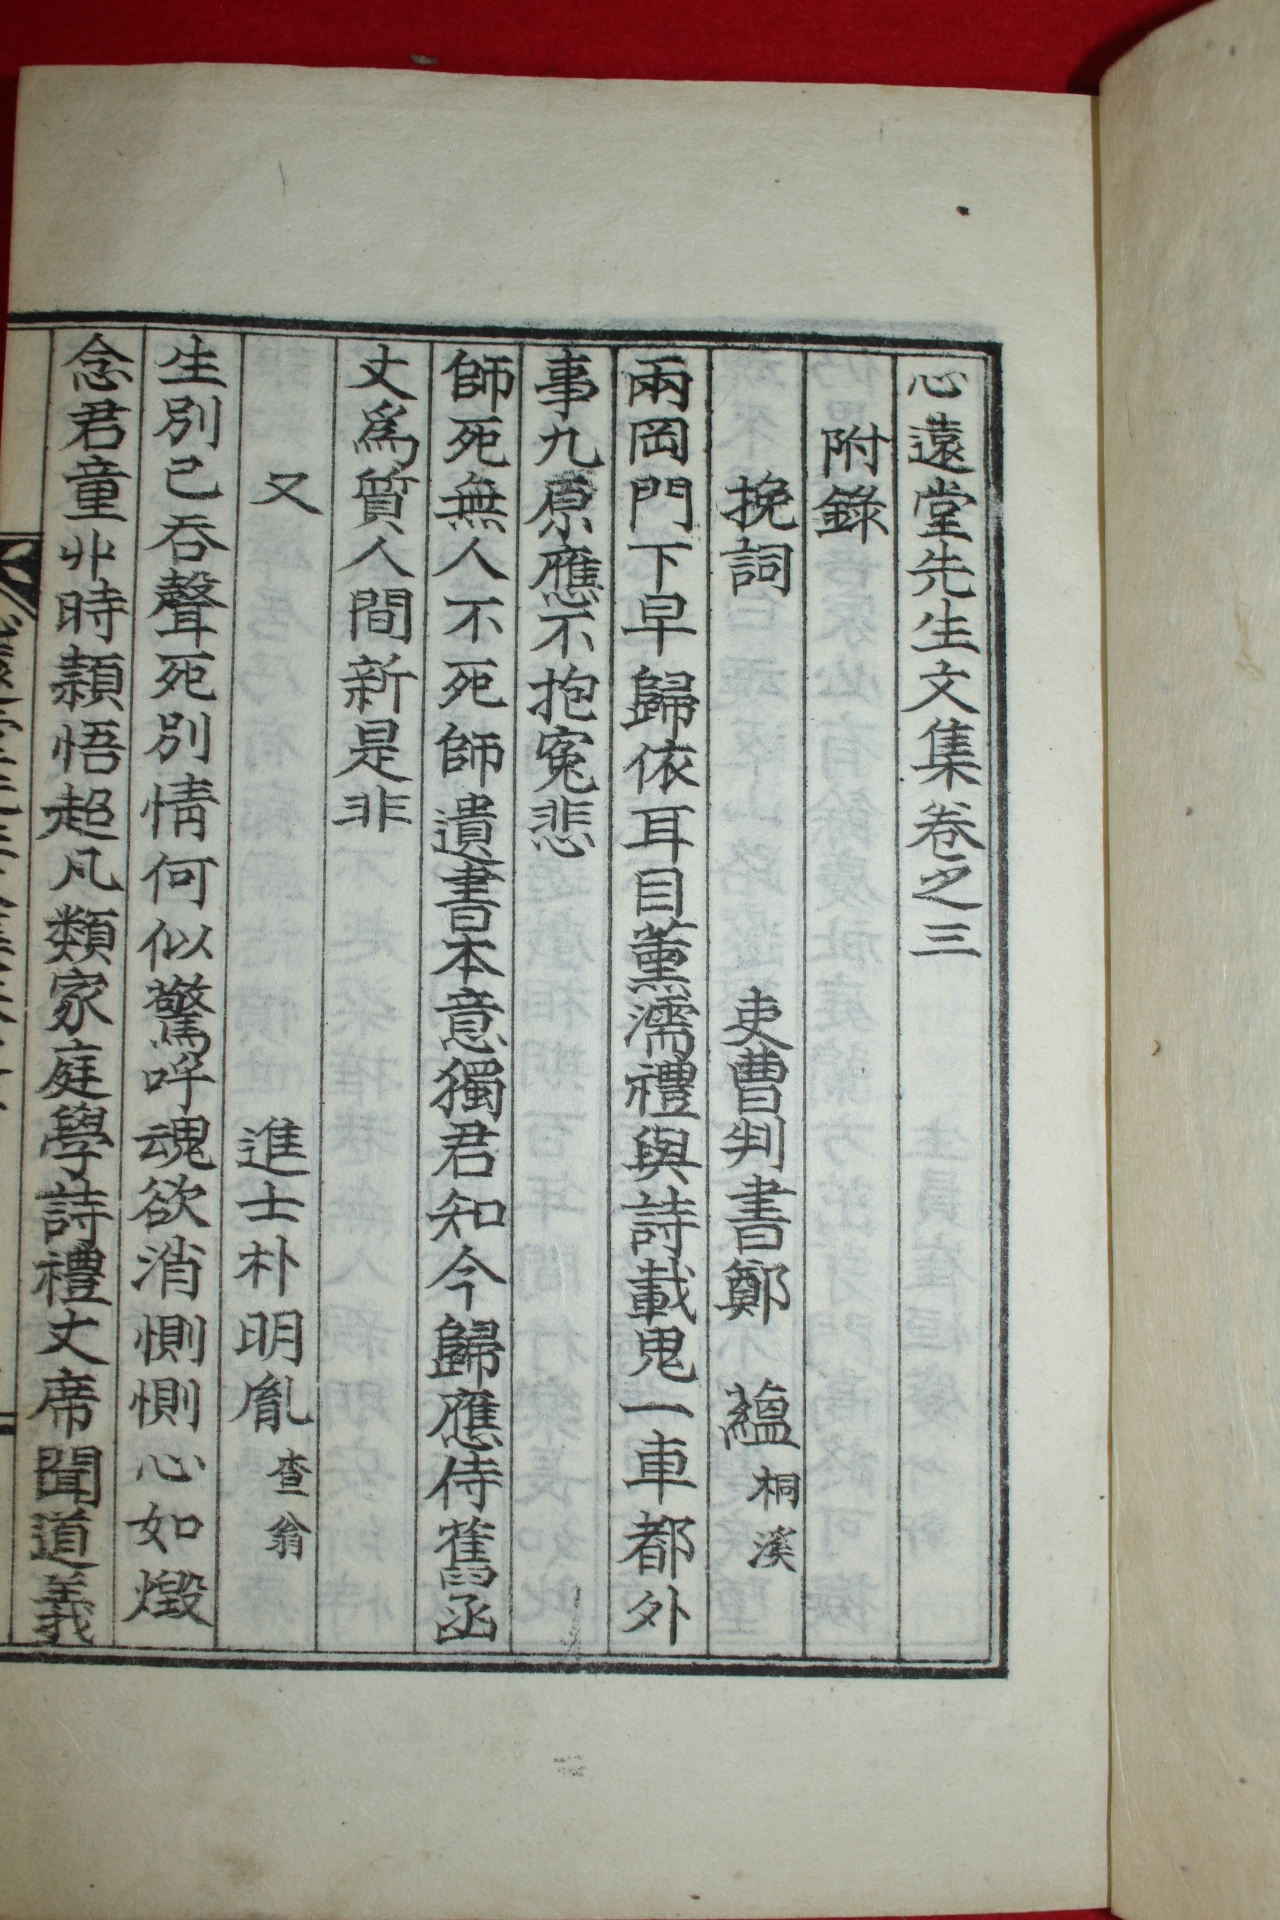 心遠堂先生文集卷之三
附錄
挽詞 吏曹判書鄭 蘊 桐溪
兩岡門下早歸依耳目薰濡禮與詩載鬼一車都外
事九原應不抱寃悲
師死無人不死師遺書本意獨君知今歸應侍舊函
丈爲質人間新是非
又 進士朴明胤 查翁
生別已吞聲死別情何似驚呼魂欲消惻惻心如燬
念君童丱時穎悟超凡類家庭學詩禮丈席聞道義